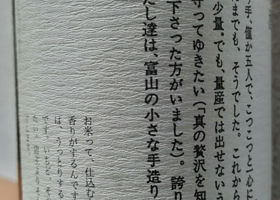 手、僅か五人で、こつこつと一心に
たまでも、そうでした。これから
少量。でも、量産では出せないう
守ってゆきたい(「真の贅沢を知
下さった方がいました)。誇り
たし達は、富山の小さな手造り
お米って、仕込む
香りがするんです
は、うっとりする
です。いちど、そ